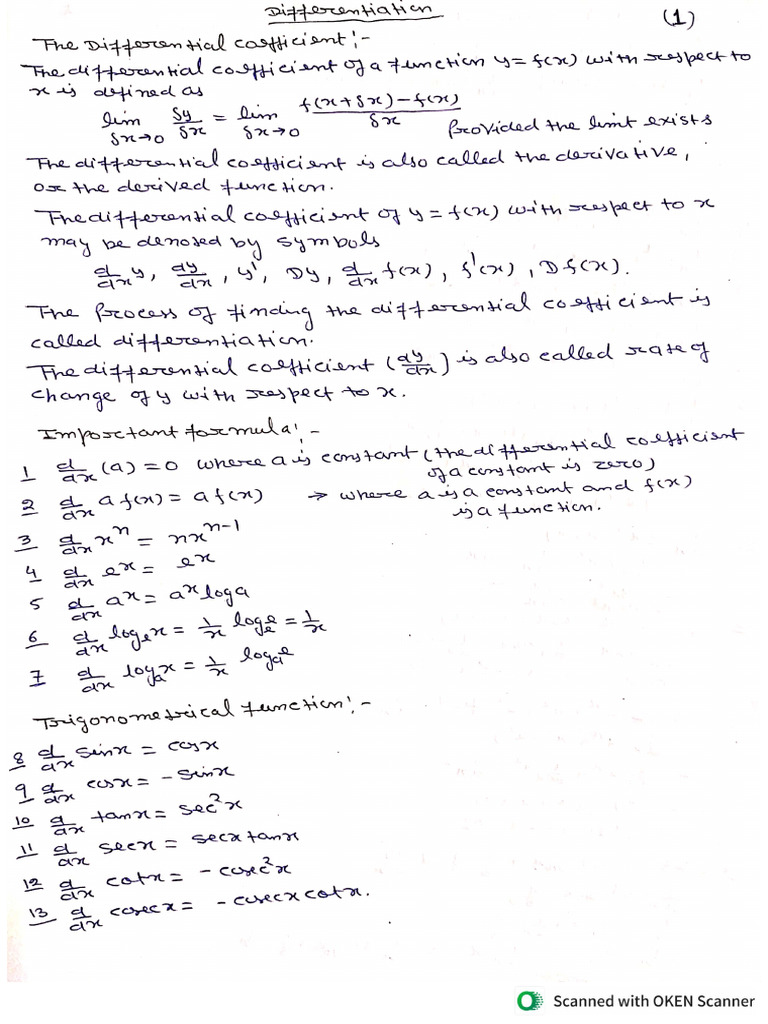 Differentiation
(1)
The Differential coefficient:-
The differential coefficient of a function y = f(x) with respect to
x is defined as
lim δx→0 δy/δx = lim δx→0 f(x+δx)-f(x)/δx provided the limit exists
The differential coefficient is also called the derivative,
or the derived function.
The differential coefficient of y = f(x) with respect to x
may be denoted by symbols
d/dx y, dy/dx, y', Dy, d/dx f(x), f'(x), Df(x).
The Process of finding the differential coefficient is
called differentiation.
The differential coefficient (dy/dx) is also called rate of
change of y with respect to x.
Important formula:-
1 d/dx (a) = 0 where a is constant (the differential coefficient
of a constant is zero)
2 d/dx a f(x) = a f(x) → where a is a constant and f(x)
is a function.
3 d/dx xⁿ = nxⁿ⁻¹
4 d/dx eˣ = eˣ
5 d/dx aˣ = aˣ log a
6 d/dx logₑx = 1/x logₑe = 1/x
7 d/dx logₐx = 1/x logₐe
Trigonometrical function:-
8 d/dx sinx = cosx
9 d/dx cosx = - sinx
10 d/dx tanx = sec²x
11 d/dx secx = secx tanx
12 d/dx cotx = - cosec²x
13 d/dx cosecx = - cosecx cotx.
Scanned with OKEN Scanner